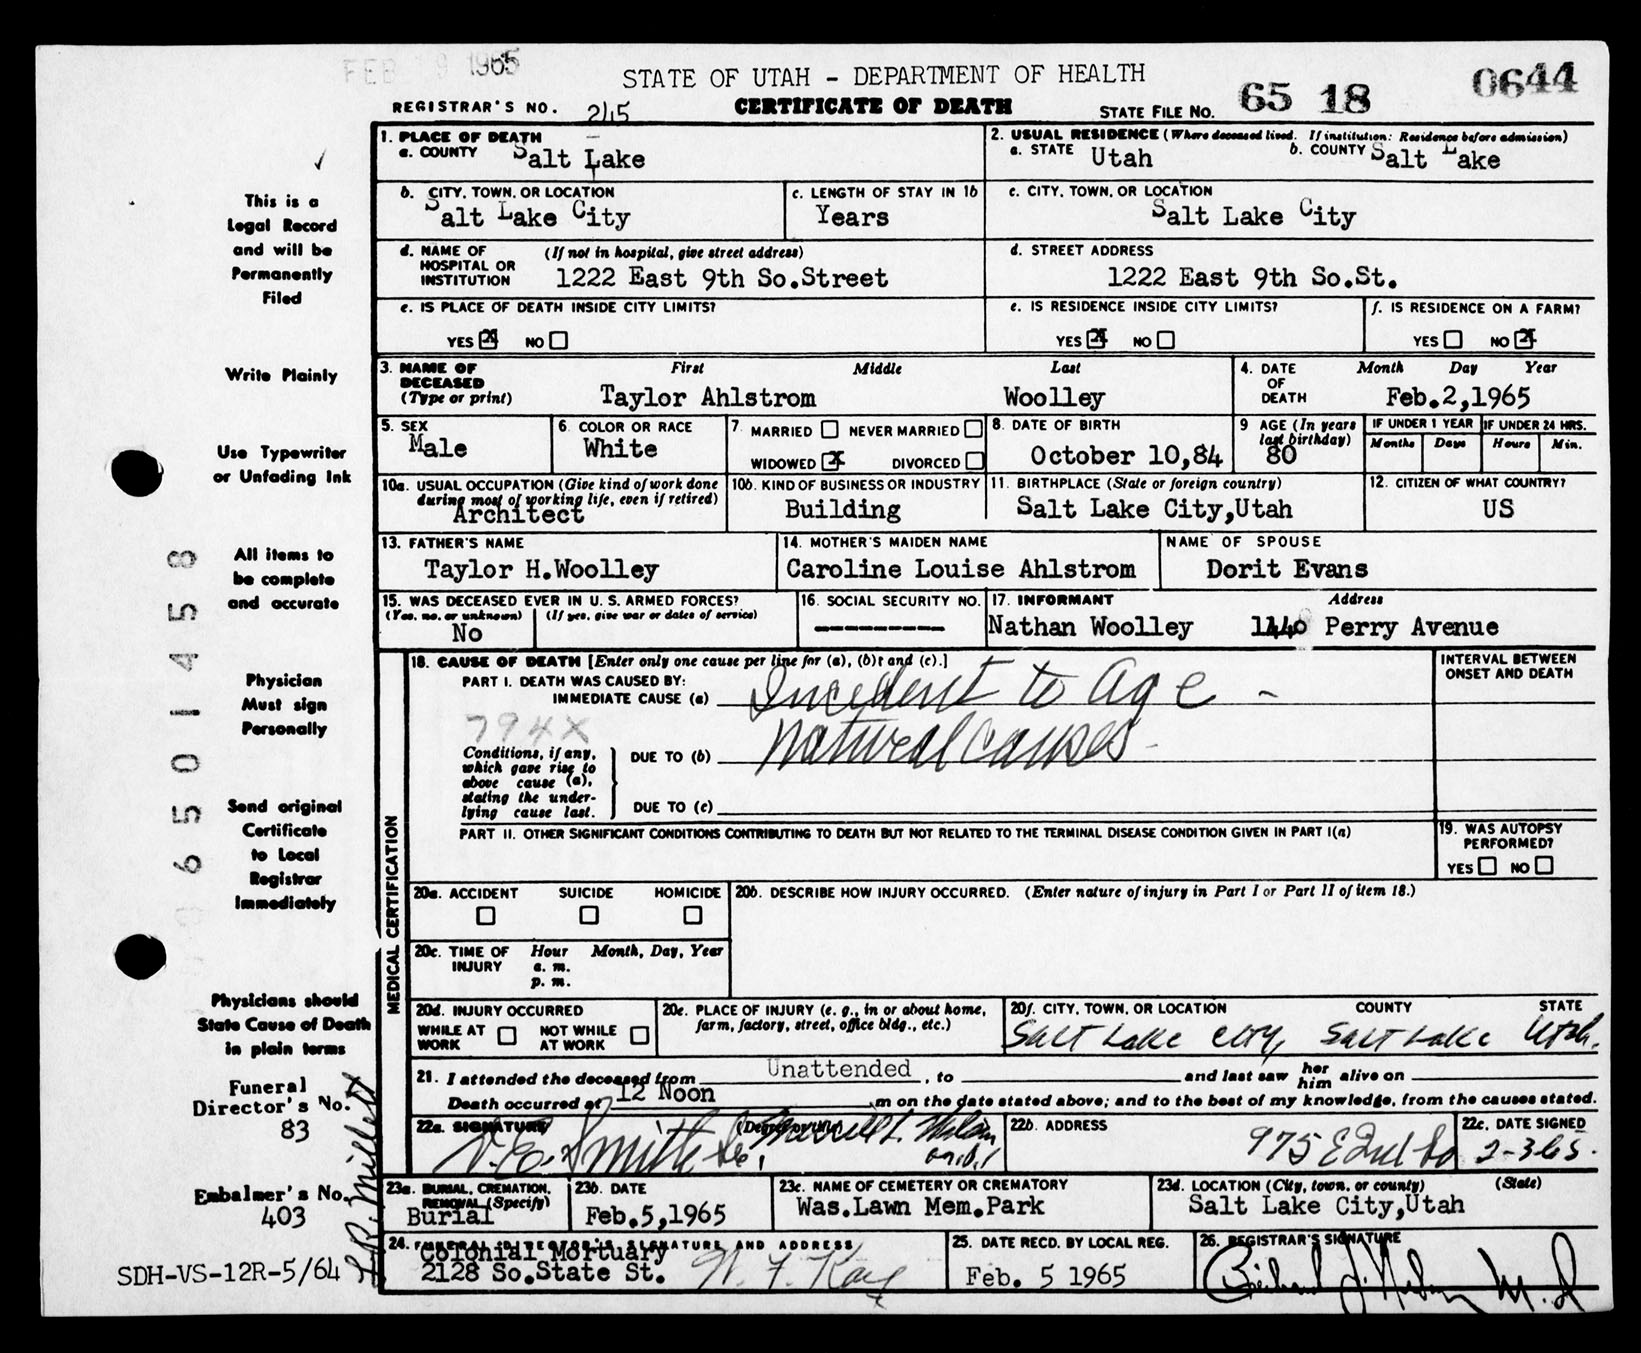 FEB 9 1965
STATE OF UTAH - DEPARTMENT OF HEALTH
REGISTRAR'S NO. 245 CERTIFICATE OF DEATH STATE FILE NO. 65 18 0644
1. PLACE OF DEATH
a. COUNTY Salt Lake
2. USUAL RESIDENCE (Where deceased lived. If institution: Residence before admission)
a. STATE Utah b. COUNTY Salt Lake
b. CITY, TOWN, OR LOCATION
Salt Lake City
c. LENGTH OF STAY IN 1b
Years
c. CITY, TOWN, OR LOCATION
Salt Lake City
d. NAME OF (If not in hospital, give street address)
HOSPITAL OR
INSTITUTION 1222 East 9th So.Street
d. STREET ADDRESS
1222 East 9th So.St.
e. IS PLACE OF DEATH INSIDE CITY LIMITS?
YES X NO
e. IS RESIDENCE INSIDE CITY LIMITS?
YES X NO
f. IS RESIDENCE ON A FARM?
YES NO X
3. NAME OF DECEASED (Type or print)
First Middle Last
Taylor Ahlstrom Woolley
4. DATE OF DEATH
Month Day Year
Feb.2,1965
5. SEX
Male
6. COLOR OR RACE
White
7. MARRIED NEVER MARRIED
WIDOWED X DIVORCED
8. DATE OF BIRTH
October 10,84
9 AGE (In years last birthday)
80
IF UNDER 1 YEAR
Months Days
IF UNDER 24 HRS.
Hours Min.
10a. USUAL OCCUPATION (Give kind of work done
during most of working life, even if retired)
Architect
10b. KIND OF BUSINESS OR INDUSTRY
Building
11. BIRTHPLACE (State or foreign country)
Salt Lake City,Utah
12. CITIZEN OF WHAT COUNTRY?
US
13. FATHER'S NAME
Taylor H.Woolley
14. MOTHER'S MAIDEN NAME
Caroline Louise Ahlstrom
NAME OF SPOUSE
Dorit Evans
15. WAS DECEASED EVER IN U. S. ARMED FORCES?
(Yes, no, or unknown) (If yes, give war or dates of service)
No
16. SOCIAL SECURITY NO.
----------
17. INFORMANT Address
Nathan Woolley Perry Avenue
MEDICAL CERTIFICATION
18. CAUSE OF DEATH [Enter only one cause per line for (a), (b), and (c).]
PART I. DEATH WAS CAUSED BY:
IMMEDIATE CAUSE (a) Incident to age -
794X
Conditions, if any,
which gave rise to
above cause (a),
stating the under-
lying cause last.
DUE TO (b) natural causes -
DUE TO (c)
INTERVAL BETWEEN
ONSET AND DEATH
PART II. OTHER SIGNIFICANT CONDITIONS CONTRIBUTING TO DEATH BUT NOT RELATED TO THE TERMINAL DISEASE CONDITION GIVEN IN PART I(a)
19. WAS AUTOPSY
PERFORMED?
YES NO
20a. ACCIDENT SUICIDE HOMICIDE
20b. DESCRIBE HOW INJURY OCCURRED. (Enter nature of injury in Part I or Part II of item 18.)
20c. TIME OF INJURY
Hour Month, Day, Year
a. m.
p. m.
20d. INJURY OCCURRED
WHILE AT WORK NOT WHILE AT WORK
20e. PLACE OF INJURY (e. g., in or about home,
farm, factory, street, office bldg., etc.)
20f. CITY, TOWN, OR LOCATION COUNTY STATE
Salt Lake City, Salt Lake Utah.
21. I attended the deceased from Unattended, to and last saw her him alive on
Death occurred at 12 Noon m on the date stated above; and to the best of my knowledge, from the causes stated.
22a. SIGNATURE (Degree or title)
V.E. Smith
22b. ADDRESS
975 E 2nd So
22c. DATE SIGNED
2-3-65.
23a. BURIAL, CREMATION,
REMOVAL (Specify)
Burial
23b. DATE
Feb.5,1965
23c. NAME OF CEMETERY OR CREMATORY
Was.Lawn Mem.Park
23d. LOCATION (City, town, or county) (State)
Salt Lake City,Utah
24. FUNERAL DIRECTOR'S SIGNATURE AND ADDRESS
Colonial Mortuary
2128 So.State St. W. F. Kay
25. DATE RECD. BY LOCAL REG.
Feb. 5 1965
26. REGISTRAR'S SIGNATURE
M.D
This is a
Legal Record
and will be
Permanently
Filed
Write Plainly
Use Typewriter
or Unfading Ink
All items to
be complete
and accurate
Physician
Must sign
Personally
Send original
Certificate
to Local
Registrar
Immediately
Physicians should
State Cause of Death
in plain terms
Funeral
Director's No.
83
Embalmer's No.
403
SDH-VS-12R-5/64
6501458